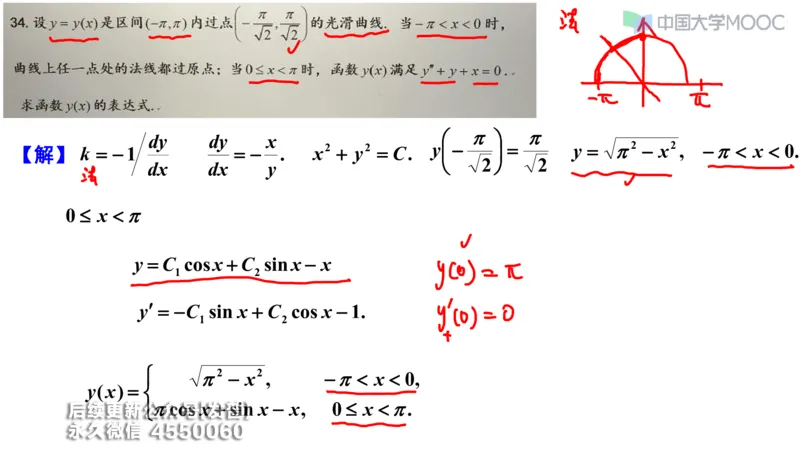 中国大学MOOC
34. 设 y = y(x) 是区间 (−π,π) 内过点 (−π/√2, π/√2) 的光滑曲线. 当 −π < x < 0 时,
法
曲线上任一点处的法线都过原点; 当 0 ≤ x < π 时, 函数 y(x) 满足 y″ + y + x = 0 .
求函数 y(x) 的表达式.
−π π
【解】 k = −1/(dy/dx) dy/dx = −x/y. x² + y² = C. y(−π/√2) = π/√2 y = √(π² − x²), −π < x < 0.
法
0 ≤ x < π
y = C₁ cos x + C₂ sin x − x y(0) = π
y′ = −C₁ sin x + C₂ cos x − 1. y′₊(0) = 0
y(x) = { √(π² − x²), −π < x < 0,
π cos x + sin x − x, 0 ≤ x < π.
永久微信 4550060